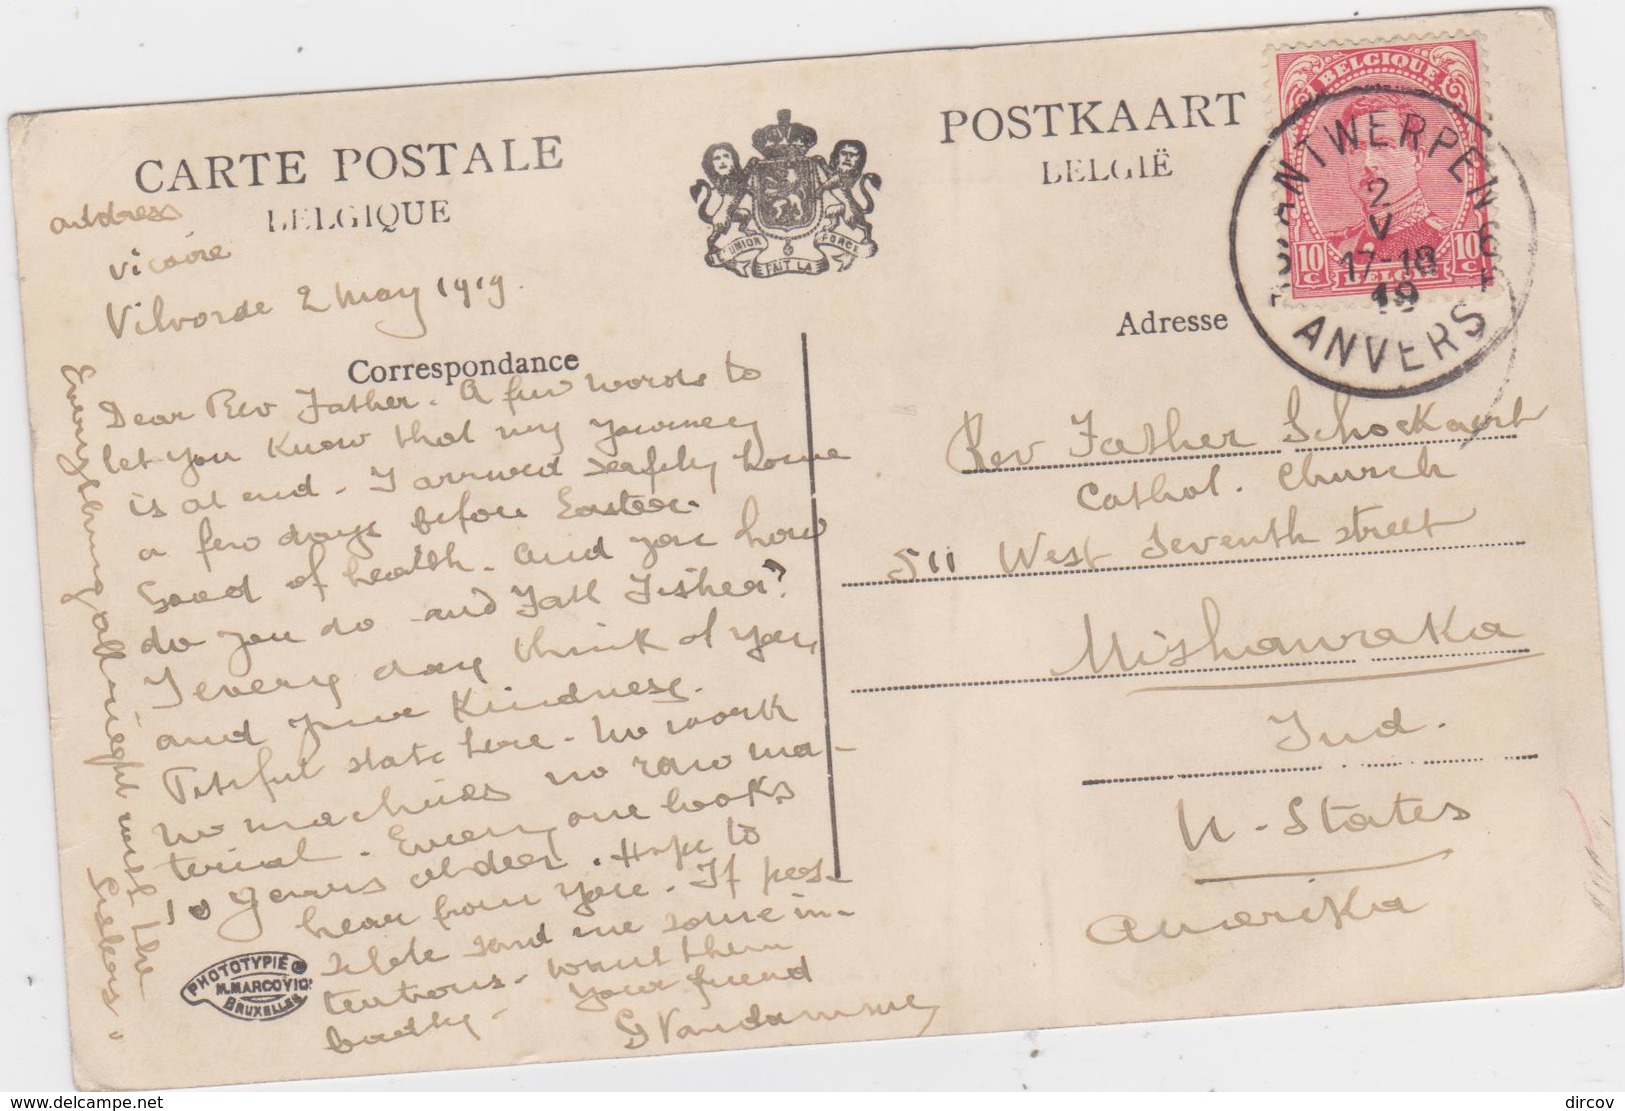 CARTE POSTALE
BELGIQUE
POSTKAART
BELGIË
UNION FAIT LA FORCE
BELGIQUE
10c 10c
BELGIË
ANTWERPEN 6
2
V
17-18
19
ANVERS
address
vicaire
Vilvorde 2 May 1919.
Correspondance
Dear Rev Father. A few words to
let you know that my yourney
is at end. I arrived seafily home
a few days before Easter.
Good of health. And you how
do you do and Fath Fisher?
I every day think of you,
and your Kindness.
Pitiful state here. No work
no machines no raw ma-
terial. Every one looks
10 years older. Hope to
hear from you. If pos-
sible send me some in-
tentions. Want them
badly.
Your friend
G Vandamme
Everything allrieght with the
Sisters.
PHOTOTYPIE
M.MARCOVICI
BRUXELLES
Adresse
Rev Father Schockaert
Cathol. Church
511 West Seventh street
Mishawaka
Ind.
U-States
Amerika
www.delcampe.net
dircov